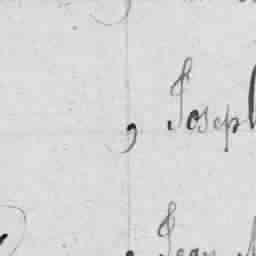 , Joseph
Jean